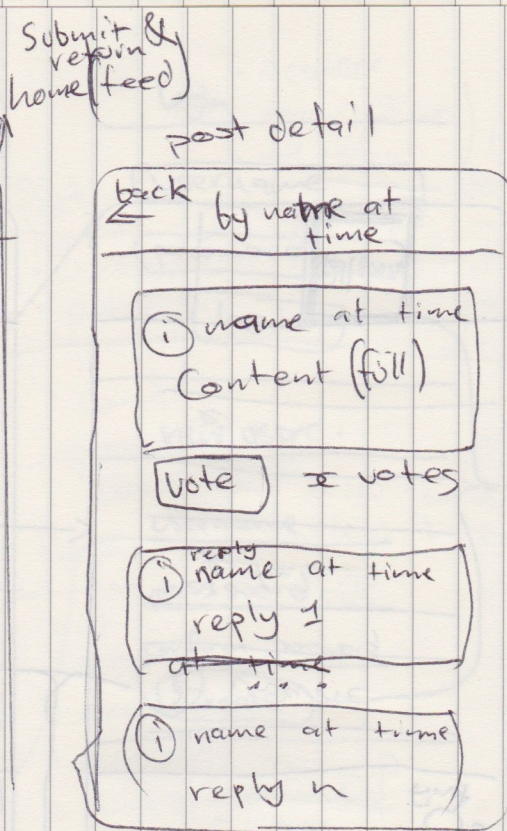 Submit &
return
home (feed)
post detail
back
by name at
time
i name at time
Content (full)
Vote x votes
reply
i name at time
reply 1
at time
i name at time
reply n